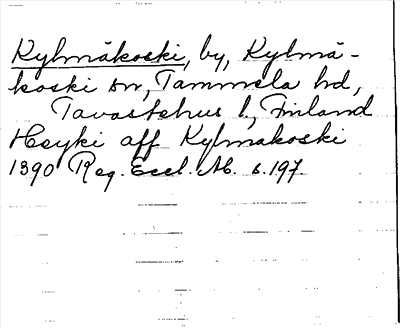 Kylmäkoski, by, Kylmä-
koski sn, Tammela hd,
Tavastehus l., Finland
Heyki aff Kylmakoski
1390 Reg. Eccl. Ab. s. 197.